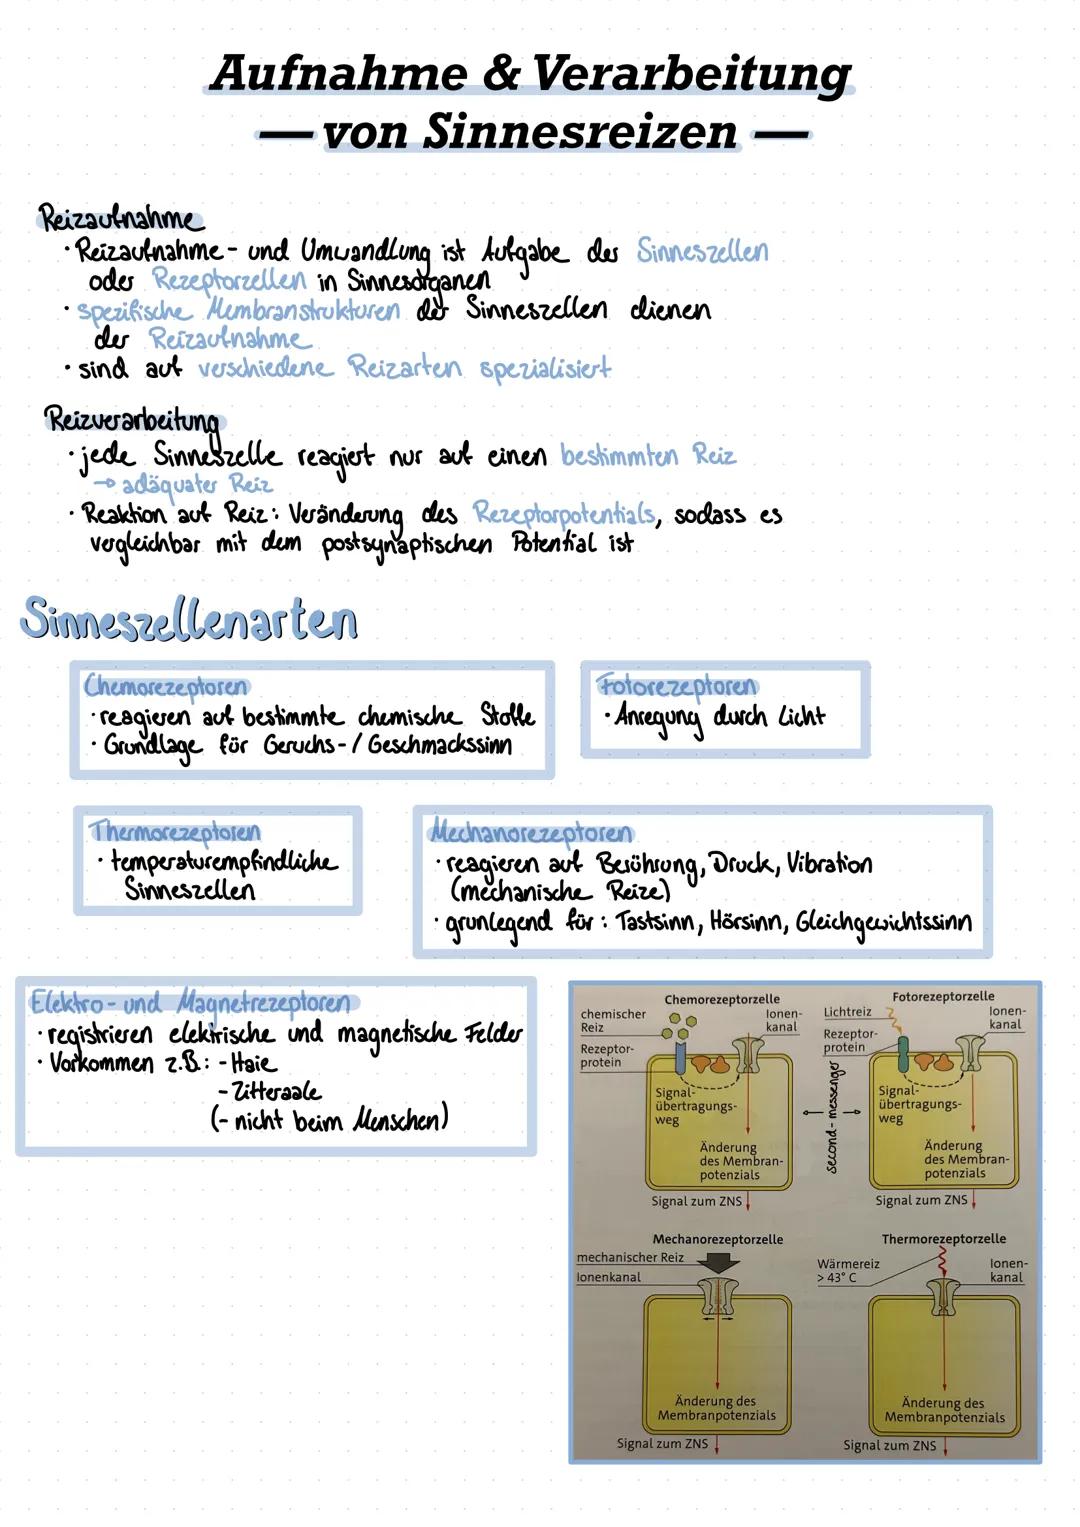 Aufnahme & Verarbeitung
— von Sinnesreizen —
Reizaufnahme
· Reizaufnahme - und Umwandlung ist Aufgabe der Sinneszellen
oder Rezeptorzellen in Sinnesorganen
· spezifische Membranstrukturen der Sinneszellen dienen
der Reizaufnahme
· sind auf verschiedene Reizarten spezialisiert
Reizverarbeitung
· jede Sinneszelle reagiert nur auf einen bestimmten Reiz
→ adäquater Reiz
· Reaktion auf Reiz: Veränderung des Rezeptorpotentials, sodass es
vergleichbar mit dem postsynaptischen Potential ist
Sinneszellenarten
Chemorezeptoren
· reagieren auf bestimmte chemische Stoffe
· Grundlage für Geruchs-/Geschmackssinn
Fotorezeptoren
· Anregung durch Licht
Thermorezeptoren
· temperaturempfindliche
Sinneszellen
Mechanorezeptoren
· reagieren auf Berührung, Druck, Vibration
(mechanische Reize)
· grunlegend für: Tastsinn, Hörsinn, Gleichgewichtssinn
Elektro- und Magnetrezeptoren
· registrieren elektrische und magnetische Felder
· Vorkommen z.B.: - Haie
- Zitteraale
(- nicht beim Menschen)
Chemorezeptorzelle
chemischer
Reiz
Ionen-
kanal
Rezeptor-
protein
Signal-
übertragungs-
weg
Änderung
des Membran-
potenzials
Signal zum ZNS
second-messenger
Fotorezeptorzelle
Lichtreiz
Ionen-
kanal
Rezeptor-
protein
Signal-
übertragungs-
weg
Änderung
des Membran-
potenzials
Signal zum ZNS
Mechanorezeptorzelle
mechanischer Reiz
Ionenkanal
Änderung des
Membranpotenzials
Signal zum ZNS
Thermorezeptorzelle
Wärmereiz
> 43° C
Ionen-
kanal
Änderung des
Membranpotenzials
Signal zum ZNS